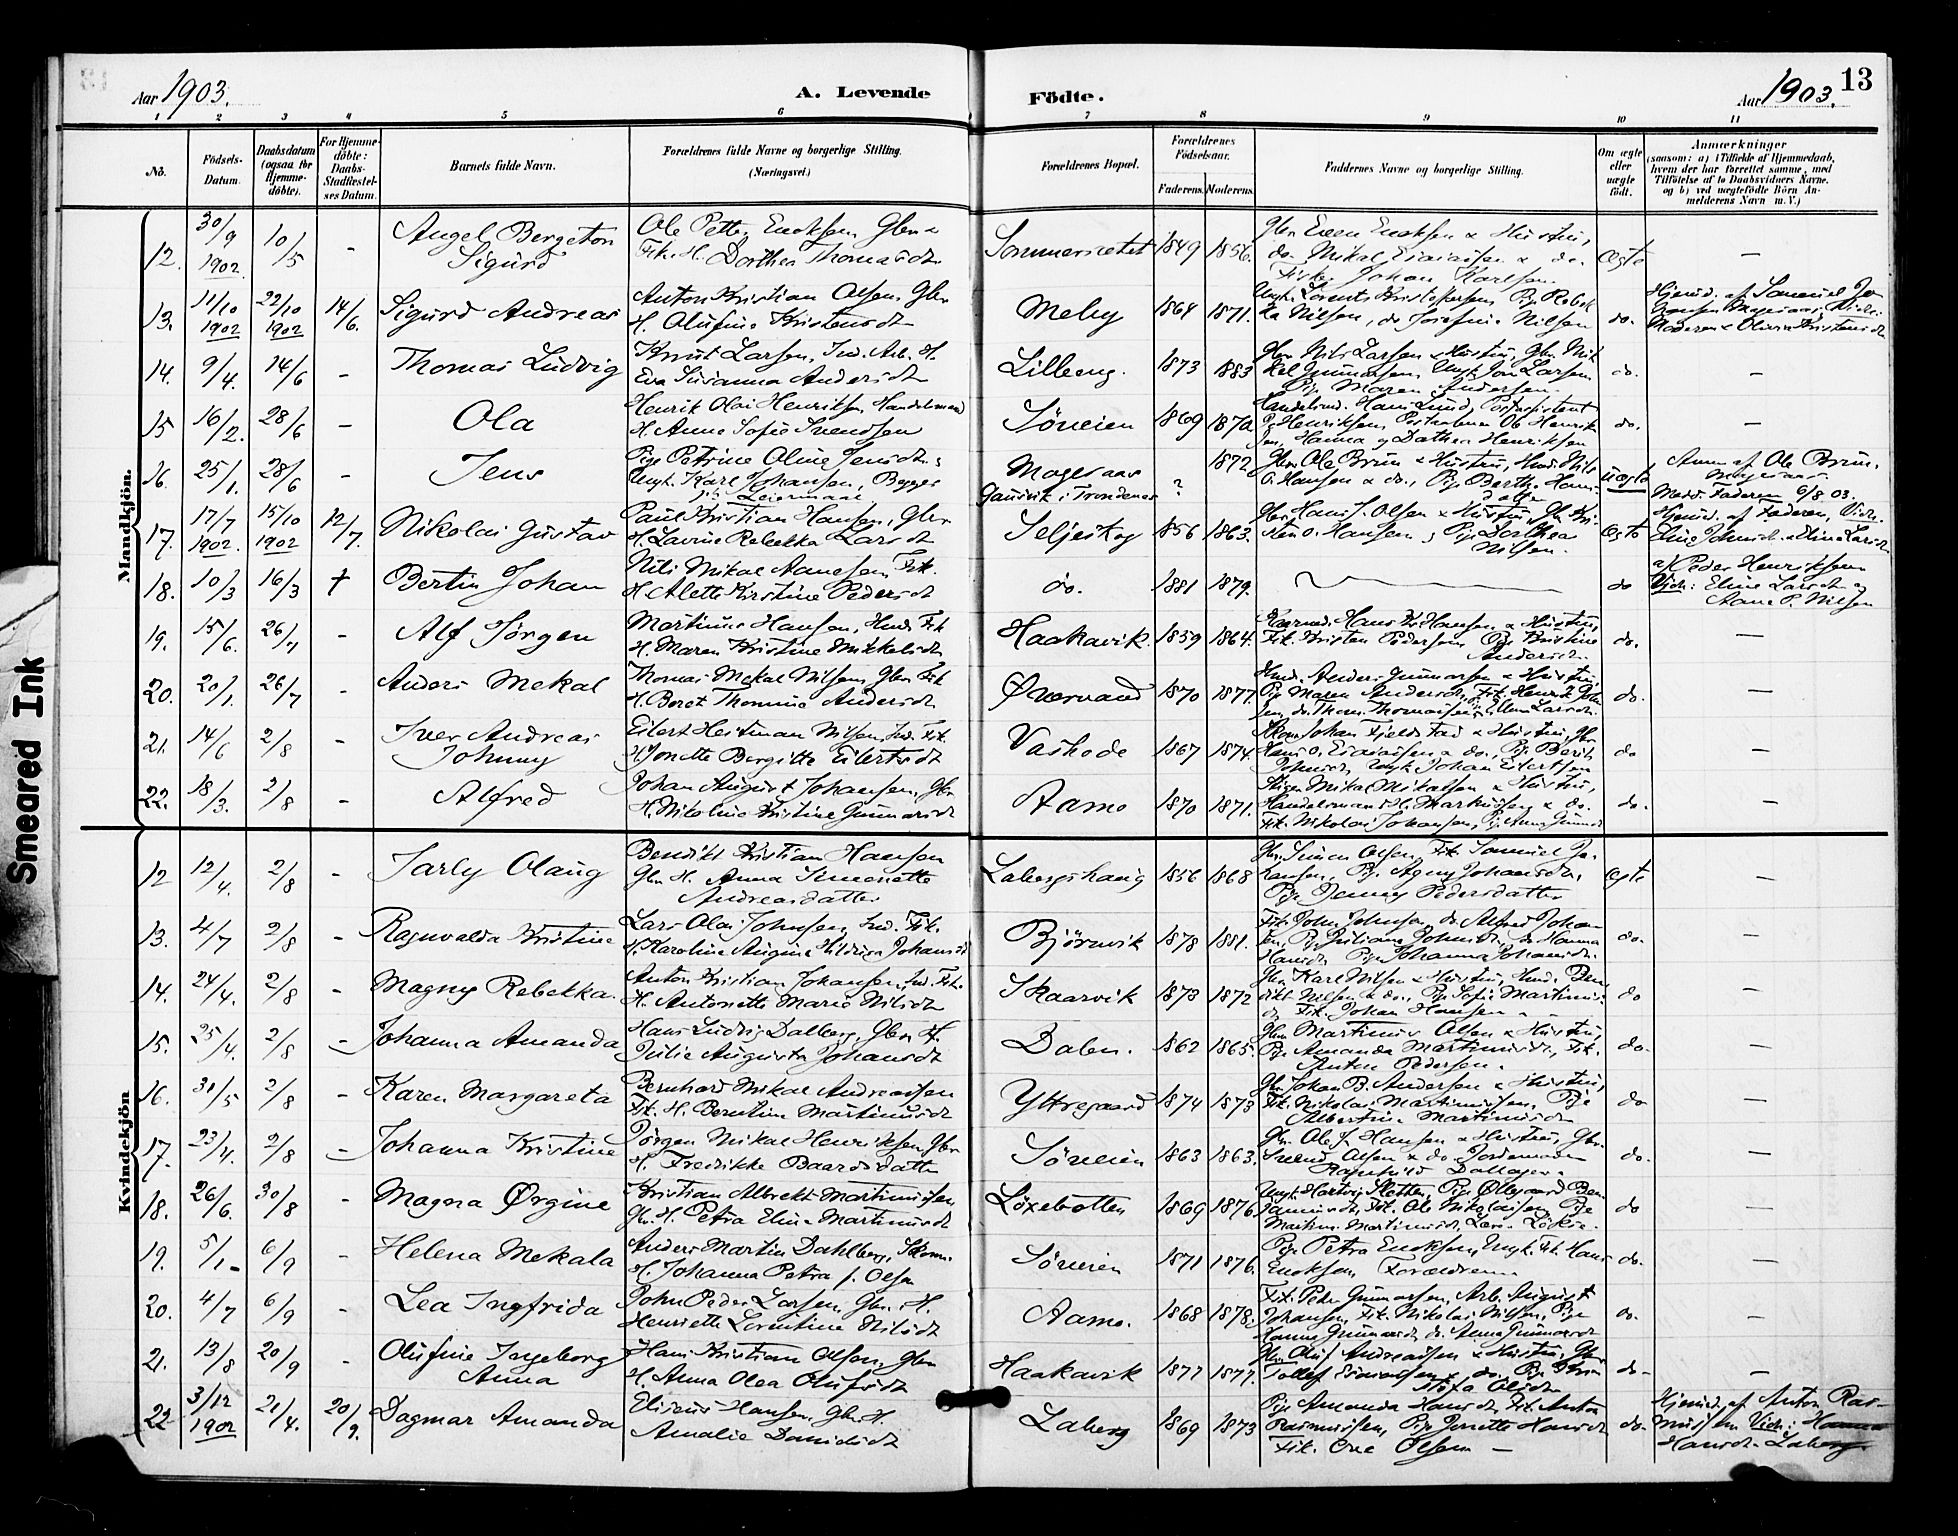 Aar 1903.
A. Levende
Födte.
Aar 1903.
13
1 2 3 4 5 6 7 8 9 10 11
No.
Födsels-Datum.
Daabsdatum (ogsaa for Hjemme-døbte).
For Hjemme-døbte: Daabs-Stadfæstel-ses Datum.
Barnets fulde Navn.
Forældrenes fulde Navne og borgerlige Stilling. (Næringsvei.)
Forældrenes Bopæl.
Forældrenes Födselsaar.
Faderens. Moderens.
Faddernes Navne og borgerlige Stilling.
Om ægte eller uægte födt.
Anmærkninger
(saasom: a) i Tilfælde af Hjemmedaab, hvem der har forrettet samme, med Tilföielse af to Daabsvidners Navne, og b) ved uægtefödte Börn An-melderens Navn m. V.)
Mandkjön.
12. 30/9 1902. 10/5 - Angel Bergeton Sigurd Ole Petter Enoksen Gbr & Fisk. H. Dorthea Thomasdt 1849 1856. Gbr Even Enoksen & Hustru, do Mikal Esaiassen & do. Fisker Johan Karlsen Ægte —
13. 11/10 1902 22/10 1902 14/6. Sigurd Andreas Anton Kristian Olsen, Gbr H. Olufine Kristensdt Meby 1864 1871. Ungk. Lorents Kristoffersen, Pige Rebek ka Nilsen, do Josefine Nilsen do. Hjemd. af Samuel Jo
14. 9/4. 14/6 - Thomas Ludvig Knut Larsen, Ind. Arb. H. Eva Susanna Andersdt Lilleeng. 1873 1883 Gbr Nils Larsen & Hustru, Gbr Mik kel Gunnarsen, Ungk. Jon Larsen Pige Maren Andersen. do. —
15 16/2. 28/6 — Ola Henrik Olai Henriksen Handelsmand H. Anne Sofie Svendsen Sørreien 1869 1870 Handelsmd. Hans Lund, Postassistent P. Henriksen, Hanna og Dathea Henriksen do. —
16. 25/1. 28/6 - Jens Pige Petrine Oline Jensdt; Ungk. Karl Johansen, Bygger Mogeraas ? 1872 Gbr Ole Brun & Hustru, O. Hansen & do., Pige Berth. Hans- uægte Anm. af Ole Brun, Mogeraas. Medd. Faderen 6/8 03.
17. 17/7 1902. 15/10 1902 12/7. Nikolai Gustav Paul Kristian Hansen, Gbr H. Lavine Rebekka Larsdt Seljeskog 1856 1863. Gbr Hans J. Olsen & Hustru, Gbr Kri- sten O. Hansen, Pige Dorthea Nilsen. Ægte Hjemd. af Faderen, Vidn.
18. 10/3 16/3 † Bertin Johan Nils Mikal Aanesen, Fisk. H. Alette Kirstine Pedersdt do. 1881 1879. — do af Peder Henriksen Vidn: Eline Larsdt og Aane P. Nilsen
19. 15/6. 26/7 - Alf Jørgen Martinus Hansen, Fisk H. Maren Kristine Mikkelsdt Haakavik. 1859 1864. Hans Kr Hansen & Hustru, Fisk. Kristen Pedersen, Pige Kristine Andersdt. do. —
20. 20/1. 26/7 - Anders Mekal Thomas Mekal Nilsen, Gbr Fisk H. Beret Thomine Andersdt Øvervand 1870 1877. Anders Gunnarsen & Hustru, Pige Maren Andersdt, Fisk. Henrik do. —
21. 14/6 2/8 - Iver Andreas Johnny Eilert Heitman Nilsen, Ind. Fisk. H. Jonette Bergitte Eilertsdt Vaskode 1867 1874. Johan Fjeldstad & Hustru, Gbr Hans O. Esaiassen & do., Pige Berit Johnsdt, Ungk. Johan Eilertsen do —
22. 18/3. 2/8 - Alfred Johan August Johansen, Gbr H. Nikoline Kristine Gunnarsdt Aamo 1870 1871. Mikal Mikalsen & Hustru, Handelsmand H. Markussen & do. Fisk. Nikolai Johansen, Pige Anna Gunnarsdt do. —
Kvindekjön
12 12/4. 2/8 - Jarly Olaug Bendikt Kristian Hansen Gbr H. Anna Simonette Andreasdatter Labergshaug 1856 1868 Gbr. Simon Olsen, Fisk. Samuel Jo- hansen, Pige Agny Johansdt, Pige Jenny Pedersdatter Ægte —
13. 4/7 2/8 - Ragnvalda Kristine Lars Olai Johnsen, Ind. Fisk. H. Karoline Augine Hildura Johansdt Bjørnvik 1878 1881. Fisk. John Johnsen, do Alfred Johan sen, Pige Juliana Johnsdt, do Hanna Hansdt. Pige Johanna Johansdt. do. —
14. 24/4. 2/8 - Magny Rebekka Anton Kristian Johansen, Ind. Fisk. H. Antonette Marie Nilsdt Skaarvik 1873 1872 Gbr Karl Nilsen & Hustru, Ben- dikt Nilsen & do., Pige Sofie Martinus- dt, Fisk. Johan Hansen do —
15. 25/4. 2/8 - Johanna Amanda Hans Ludvig Dalberg, Gbr H. Julie Augusta Johansdt Dalen. 1862 1865. Gbr Martinus Olsen & Hustru, Pige Amanda Martinusdt., Fisk. Anton Pedersen. do. —
16. 31/5 2/8 - Karen Margareta Bernhard Mikal Andreassen Fisk. H. Berntine Martinusdt Yttregaard 1874 1873 Gbr Johan B. Andersen & Hustru, Fisk. Nikolai Martinussen, Pige Albertine Martinusdt do —
17. 23/4. 2/8 - Johanna Kristine Jørgen Mikal Henriksen, Gbr H. Fredrikke Baardsdatter Sørreien 1863 1863. Gbr Ole J. Hansen & Hustru, Gbr Svend Olsen & do Jordemoder Ragnhild do. —
18. 26/6. 30/8 - Magna Ørgine Kristian Albrekt Martinussen Gbr. H. Petra Elina Martinusdt Löxebotten 1869 1876 Ungk. Hartvig Sletten, Pige Ollegaard Ben- jaminsdt, Fisk. Ole Nikolaisen, Pige do —
19. 5/1 6/9 - Helena Mekala Anders Martin Dahlberg, Skom. H. Johanna Petra f. Olsen Sørreien 1871 1876. Pige Petra Enoksen, Ungk. Fisk. Hans Enoksen, Forældrene do. —
20. 4/7 6/9 - Lea Ingfrida John Peder Larsen, Gbr. H. Henriette Lorentine Nilsdt Aamo. 1868 1878. Fisk. Peder Gunnarsen, Arb. August Johansen, Fisk. Nikolai Nilsen, Pige Hanna Gunnarsdt, do. Anna Gunnarsdt do. —
21. 13/8 20/9 - Olufine Ingeborg Anna Hans Kristian Olsen, Gbr H. Anna Olea Olufsdt Haakavik 1877 1877. Gbr Oluf Andreassen & Hustru, Gbr Tollef & do., do- —
22 3/12 1902 21/4. 20/9. Dagmar Amanda Elisæus Hansen, Gbr H. Amalie Danielsdt Laberg 1869 1873 Pige Amanda Hansdt, Fisk. Anton Rasmussen, Pige Jonette Hansdt Fisk. Ove Olsen — do. Hjemd. af Anton Ras- mussen Vidn: Hanna Hansdt. Laberg
Smeared Ink